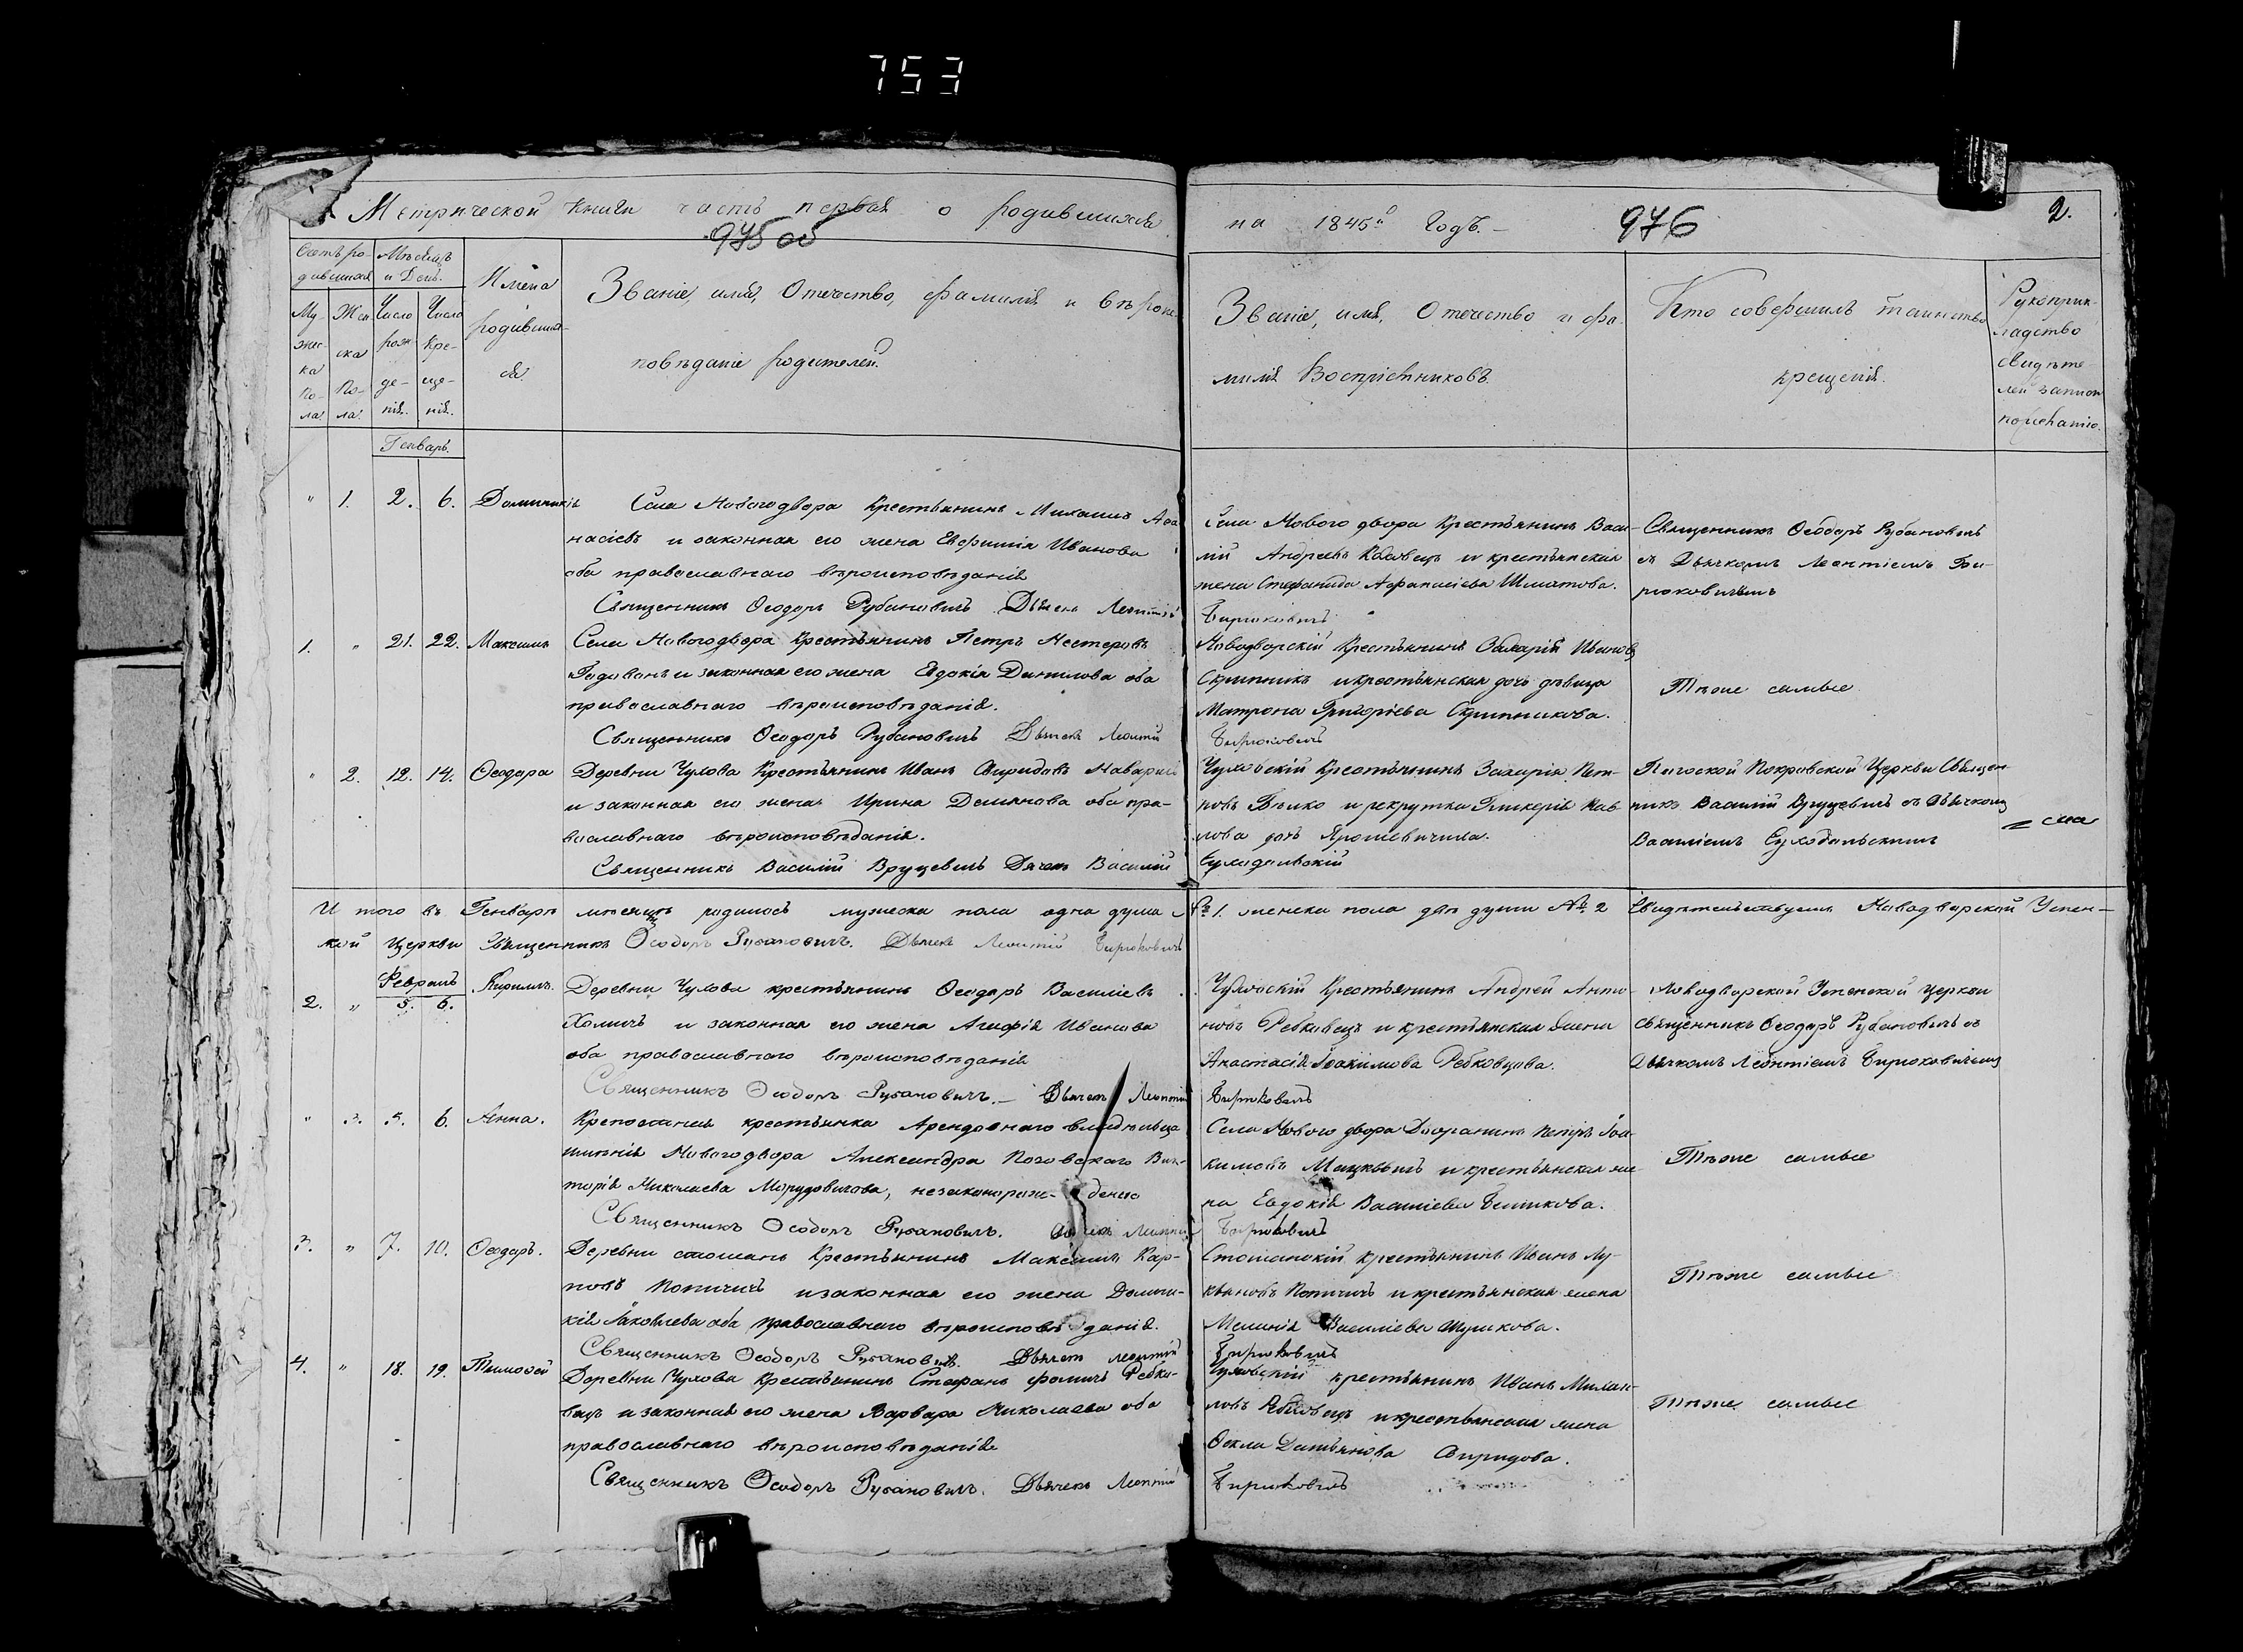 753
Метрической книги часть первая о родившихся на 1845й Годъ.
975 об
976
2.
Счетъ родившихся
Мѣсяцъ и День.
Имена родившихся
Званіе, имя, Отечество, фамилія и вѣроисповѣданіе родителей.
Званіе, имя, Отечество и фамилія Воспріемниковъ.
Кто совершилъ таинство крещенія.
Рукоприкладство свидѣтелей
Мужеска Пола
Женска Пола.
Число рожденія.
Число Крещенія.
Генварь.
" 1. 2. 6.
Села Новогодвора Крестьянинъ Михаилъ Афанасіевъ и законная его жена Евфимія Иванова
оба православнаго вѣроисповѣданія
Священникъ Ѳеодоръ Рубановичъ Дьячекъ Леонтій
Села Нового двора Крестьянинъ Василій Андреевъ и крестьянская
жена Стефанида Афанасіева
Бирюковичъ
Священникъ Ѳеодоръ Рубановичъ
съ Дьячкомъ Леонтіемъ Бирюковичемъ
1. " 21. 22. Максимъ
Села Новогодвора Крестьянинъ Петръ Нестеровъ
и законная его жена Евдокія Данилова оба
православнаго вѣроисповѣданія.
Священникъ Ѳеодоръ Рубановичъ Дьячекъ Леонтій
Новодворскій Крестьянинъ Захарій Ивановъ
Скрипникъ и крестьянская дочь дѣвица
Матрона Григоріева Скрипникова.
Бирюковичъ
Тѣже самые
" 2. 12. 14. Ѳеодора
Деревни Чухова Крестьянинъ Иванъ Свиридовъ
и законная его жена Ирина Демянова оба православнаго вѣроисповѣданія.
Священникъ Василій Вруцевичъ Дьячекъ Василій
Чуховскій Крестьянинъ Захарія
и рекрутка Гликерія
дочь
Суходольскій
Покровской Церкви Священникъ Василій Вруцевичъ съ Дьячкомъ
Василіемъ Суходольскимъ
И того въ Генварѣ мѣсяцѣ родилось мужеска пола одна душа № 1. женска пола двѣ души № 2 Свидѣтельствуемъ Новодворской Успенской Церкви Священникъ Ѳеодоръ Рубановичъ. Дьячекъ Леонтій Бирюковичъ
Февраль
2. " 5. 6. Кириллъ.
Деревни Чухова крестьянинъ Ѳеодоръ Василіевъ
Хомичъ и законная его жена Агафія Иванова
оба православнаго вѣроисповѣданія
Священникъ Ѳеодоръ Рубановичъ. — Дьячекъ Леонтій
Чуховскій Крестьянинъ Андрей Антоновъ Ребковецъ и крестьянская жена
Анастасія Іоакимова Ребковцова.
Бирюковичъ
Новодворской Успенской церкви
священникъ Ѳеодоръ Рубановичъ съ
Дьячкомъ Леонтіемъ Бирюковичемъ
" 3. 5. 6. Анна.
Крепостная крестьянка Арендовнаго владѣльца
имѣнія Новогодвора Александра Викторія Николаева незаконнорожденно
Священникъ Ѳеодоръ Рубановичъ.
Села Нового двора Дворанинъ Петръ Іоакимовъ и крестьянская жена Евдокія Василіева
Бирюковичъ
Тѣже самые
3. " 7. 10. Ѳеодоръ.
Деревни Крестьянинъ Максимъ Карповъ Попичичъ и законная его жена Доминикія Яковлева оба православнаго вѣроисповѣданія.
Священникъ Ѳеодоръ Рубановичъ. Дьячекъ Леонтій
крестьянинъ Иванъ Лукьяновъ Попичичъ и крестьянская жена
Меланія Василіева
Бирюковичъ
Тѣже самые
4. " 18. 19. Тимофей
Деревни Чухова Крестьянинъ Стефанъ Фомичъ Ребковецъ и законная его жена Варвара Николаева оба
православнаго вѣроисповѣданія
Священникъ Ѳеодоръ Рубановичъ. Дьячекъ Леонтій
Чуховскій крестьянинъ Иванъ
Ребковецъ и крестьянская жена
Ѳекла Демьянова Свиридова.
Бирюковичъ
Тѣже самые